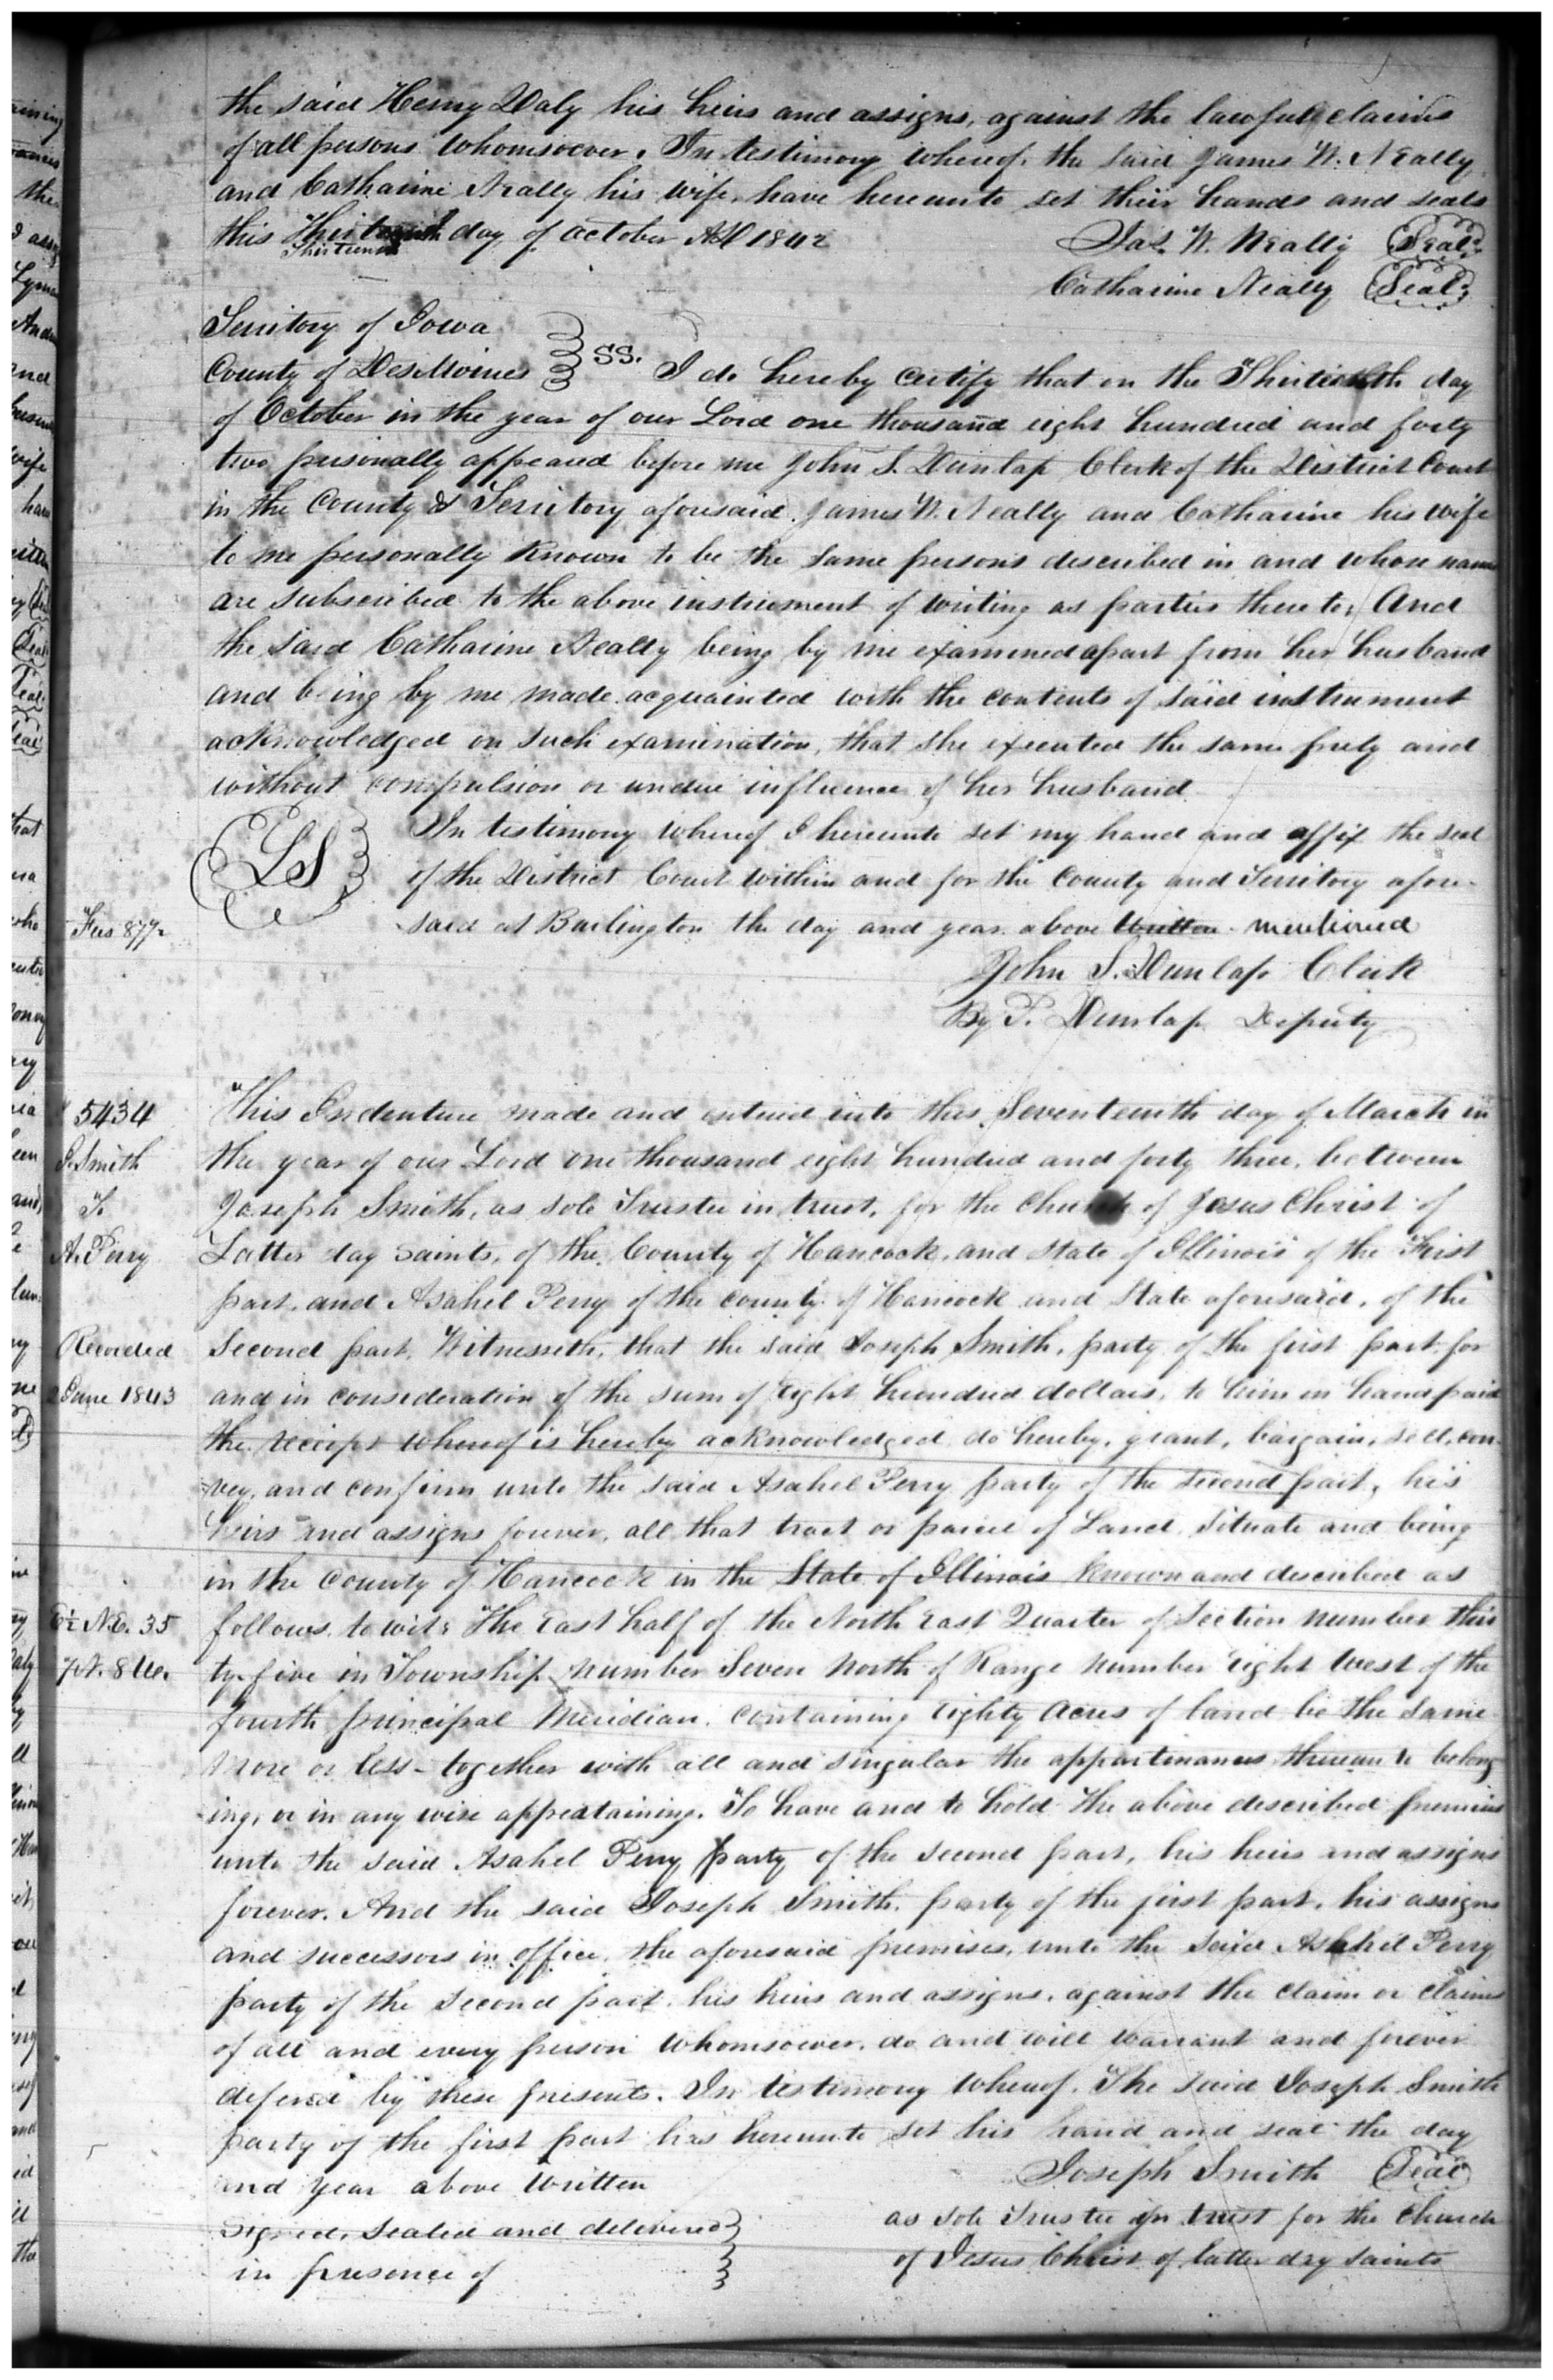 the said Henry Daly his heirs and assigns, against the lawfull claims
of all persons whomsoever. In testimony whereof, the said James W. Neally
and Catharine Neally his wife, have hereunto set their hands and seals
this day of October AD 1842
Thirteenth
Jas. W. Neally (Seal)
Catharine Neally (Seal)
Territory of Iowa
County of DesMoines } SS. I do hereby certify that on the Thirteenth day
of October in the year of our Lord one thousand eight hundred and forty
two personally appeared before me John S. Dunlap Clerk of the District Court
in the County & Territory aforesaid. James W. Neally and Catharine his wife
to me personally known to be the same persons described in and whose names
are subscribed to the above instrument of writing as parties thereto; And
the said Catharine Neally being by me examined apart from her husband
and being by me made acquainted with the contents of said instrument
acknowledged on such examination, that she executed the same freely and
without compulsion or undue influence of her husband.
LS
In testimony whereof I hereunto set my hand and affix the seal
of the District Court within and for the County and Territory afore-
Fees 87½
said at Burlington the day and year above written mentioned
John S. Dunlap Clerk
By P. Dunlap Deputy
5434
This Indenture made and entered into this Seventeenth day of March in
J. Smith
the year of our Lord one thousand eight hundred and forty three, between
To
Joseph Smith, as sole Trustee in trust, for the Church of Jesus Christ of
A. Perry
Latter day saints, of the County of Hancock, and State of Illinois of the First
part, and Asahel Perry of the county of Hancock and State aforesaid, of the
Recorded
second part, Witnesseth, that the said Joseph Smith, party of the first part for
2 June 1843
and in consideration of the sum of Eight hundred dollars, to him in hand paid
the receipt whereof is hereby acknowledged do hereby, grant, bargain, sell, con-
vey, and confirm unto the said Asahel Perry party of the second part, his
heirs and assigns forever, all that tract or parcel of Land, situate and being
in the County of Hancock in the State of Illinois known and described as
E½ N.E. 35
follows to wit: The East half of the North East Quarter of Section number thir
7N. 8W.
ty-five in Township number Seven North of Range number eight West of the
fourth principal Meridian, containing Eighty Acres of land be the same
more or less - together with all and singular the appurtinances thereunto belong
ing, or in any wise appretaining. To have and to hold the above described premises
unto the said Asahel Perry party of the second part, his heirs and assigns
forever. And the said Joseph Smith, party of the first part, his assigns
and successors in office, the aforesaid premises, unto the said Asahel Perry
party of the second part, his heirs and assigns, against the claim or claims
of all and every person whomsoever, do and will warrant and forever
defend by these presents. In testimony whereof, The said Joseph Smith
party of the first part has hereunto set his hand and seal the day
and year above written
Joseph Smith (Seal)
as sole Trustee in trust for the Church
of Jesus Christ of latter day saints
Signed, sealed and delivered
in presence of